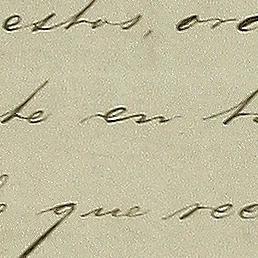 estos, ord
te en t
que ree